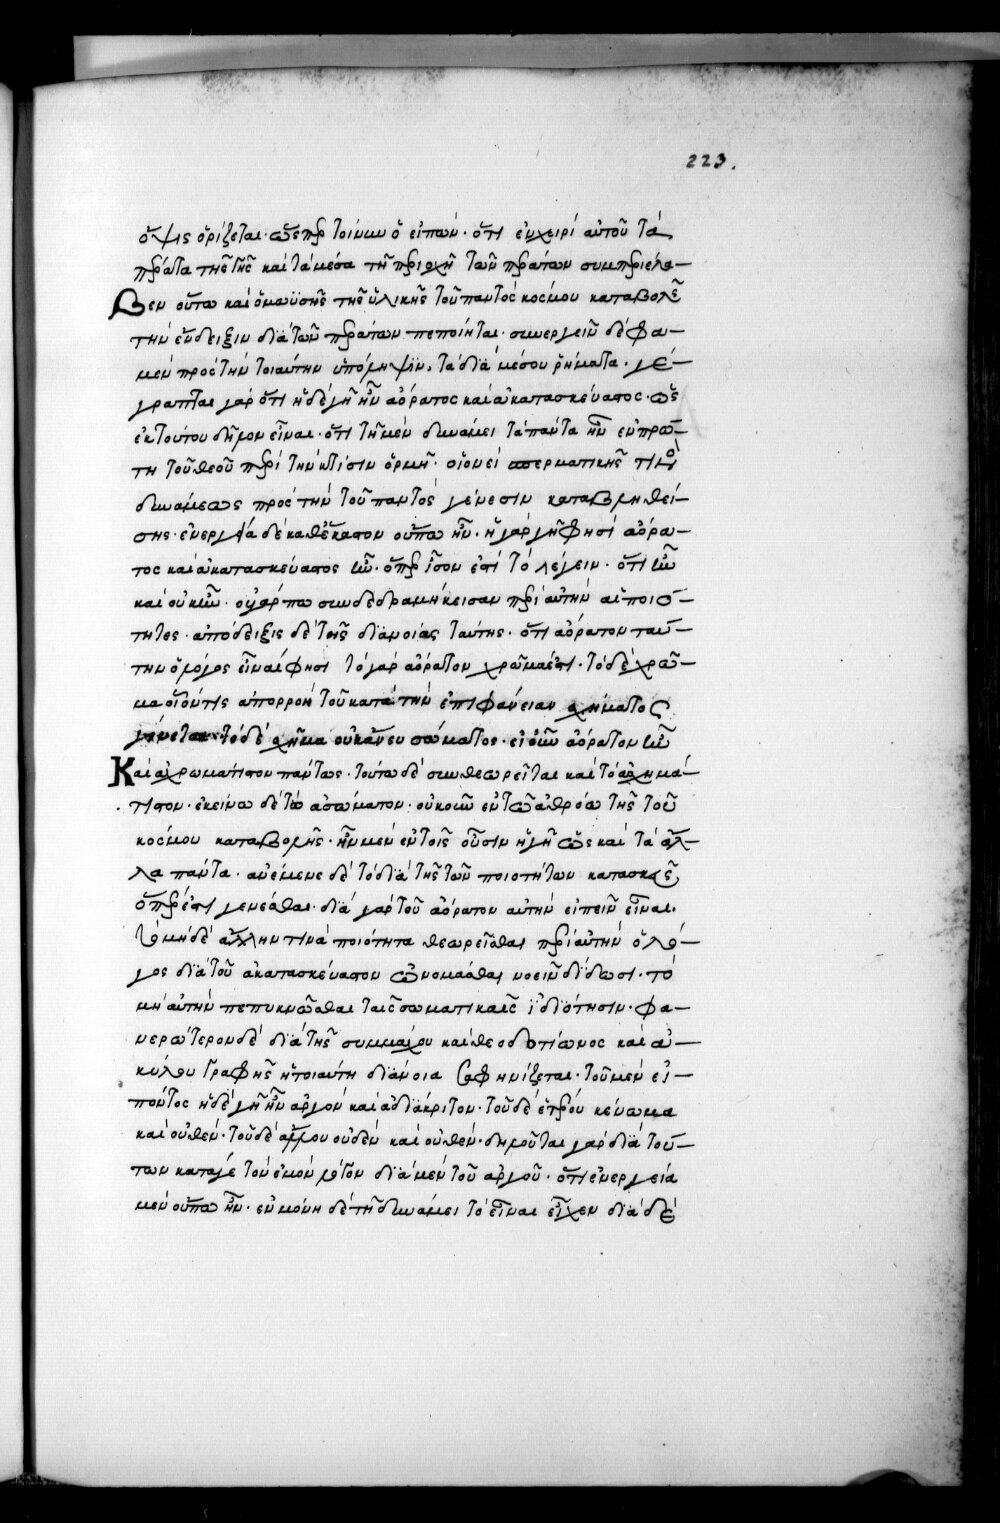 223.
ὄψις ὁρίζεται· ὥσπερ τοίνυν ὁ εἰπών· ὅτι ἐν χειρὶ αὐτοῦ τὰ
πέρατα τῆς γῆς καὶ τὰ μέσα τῇ περιοχῇ τῶν περάτων συμπεριέλα–
βεν οὕτω καὶ ὁ μωϋσῆς τῆς ὑλικῆς τοῦ παντὸς κόσμου καταβολῆς
τὴν ἔνδειξιν διὰ τῶν περάτων πεποίηται· συνεργεῖν δέ φα–
μεν πρὸς τὴν τοιαύτην ὑπόληψιν, τὰ διὰ μέσου ῥήματα· γέ–
γραπται γὰρ ὅτι ἡ δὲ γῆ ἦν ἀόρατος καὶ ἀκατασκεύαστος· ὡς
ἐκ τούτου δῆλον εἶναι· ὅτι τῇ μὲν δυνάμει τὰ πάντα ἦν ἐν πρώ–
τῃ τοῦ θεοῦ περὶ τὴν κτίσιν ὁρμῇ· οἱονεὶ σπερματικῆς τινὸς
δυνάμεως πρὸς τὴν τοῦ παντὸς γένεσιν καταβληθεί–
σης· ἐνεργείᾳ δὲ καθέκαστον οὔπω ἦν· ἡ γὰρ γῆ φησὶ ἀόρα–
τος καὶ ἀκατασκεύαστος ἦν· ὅπερ ἴσον ἐστὶ τὸ λέγειν· ὅτι ἦν
καὶ οὐκ ἦν· οὐ γάρ πω συνδεδραμήκεισαν περὶ αὐτὴν αἱ ποιό–
τητες· ἀπόδειξις δὲ τῆς διανοίας ταύτης· ὅτι ἀόρατον ταύ–
την ὁ λόγος εἶναί φησι τὸ γὰρ ἀόρατον χρῶμα ἐστι· τὸ δὲ χρῶ–
μα οἷόν τις ἀπορροὴ τοῦ κατὰ τὴν ἐπιφάνειαν σχήματος
γίνεται· τὸ δὲ σχῆμα οὐκ ἄνευ σώματος· εἰ οὖν ἀόρατον ἦν
Καὶ ἀχρωμάτιστον πάντως· τούτῳ δὲ συνθεωρεῖται καὶ τὸ ἀσχημά–
τιστον· ἐκείνῳ δὲ τὸ ἀσώματον· οὐκοῦν ἐν τῷ ἀθρόῳ τῆς τοῦ
κόσμου καταβολῆς· ἦν μὲν ἐν τοῖς οὖσιν ἡ γῆ ὡς καὶ τὰ ἄλ–
λα πάντα· ἀνέμενε δὲ τὸ διὰ τῆς τῶν ποιοτήτων κατασκευῆς
ὅπερ ἐστὶ γενέσθαι· διὰ γὰρ τοῦ ἀόρατον αὐτὴν εἰπεῖν εἶναι·
τὸ μηδὲ ἄλλην τινὰ ποιότητα θεωρεῖσθαι περὶ αὐτὴν ὁ λό–
γος διὰ τοῦ ἀκατασκεύαστον ὠνομάσθαι νοεῖν δίδωσι· τὸ
μὴ αὐτὴν πεπυκνῶσθαι ταῖς σωματικαῖς ἰδιότησιν· φα–
νερώτερον δὲ διὰ τῆς συμμάχου καὶ θεοδοτίωνος καὶ ἀ–
κύλου γραφῆς ἡ τοιαύτη διάνοια σαφηνίζεται· τοῦ μὲν εἰ–
πόντος ἡ δὲ γῆ ἦν ἀργὸν καὶ ἀδιάκριτον· τοῦ δὲ ἑτέρου κένωμα
καὶ οὐθέν· τοῦ δὲ ἄλλου οὐδὲν καὶ οὐθέν· δηλοῦται γὰρ διὰ τού–
των κατά γε τὸν ἐμὸν λόγον διὰ μὲν τοῦ ἀργοῦ· ὅτι ἐνεργείᾳ
μὲν οὔπω ἦν· ἐν μόνῃ δὲ τῇ δυνάμει τὸ εἶναι εἶχεν διὰ δὲ